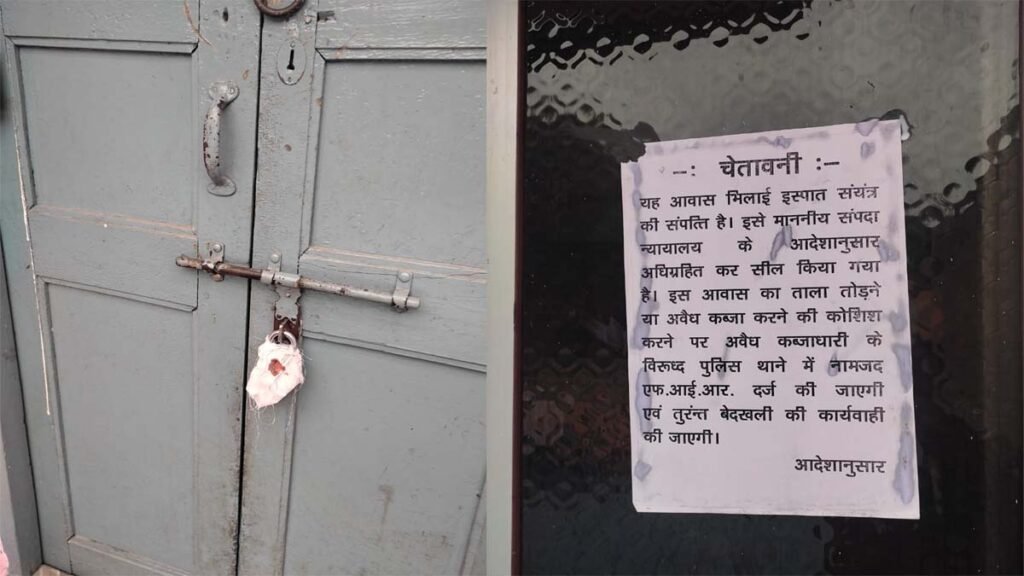 -: चेतावनी :-
यह आवास भिलाई इस्पात संयंत्र
की संपत्ति है। इसे माननीय संपदा
न्यायालय के आदेशानुसार
अधिग्रहित कर सील किया गया
है। इस आवास का ताला तोड़ने
या अवैध कब्जा करने की कोशिश
करने पर अवैध कब्जाधारी के
विरूध्द पुलिस थाने में नामजद
एफ.आई.आर. दर्ज की जाएगी
एवं तुरंन्त बेदखली की कार्यवाही
की जाएगी।
आदेशानुसार